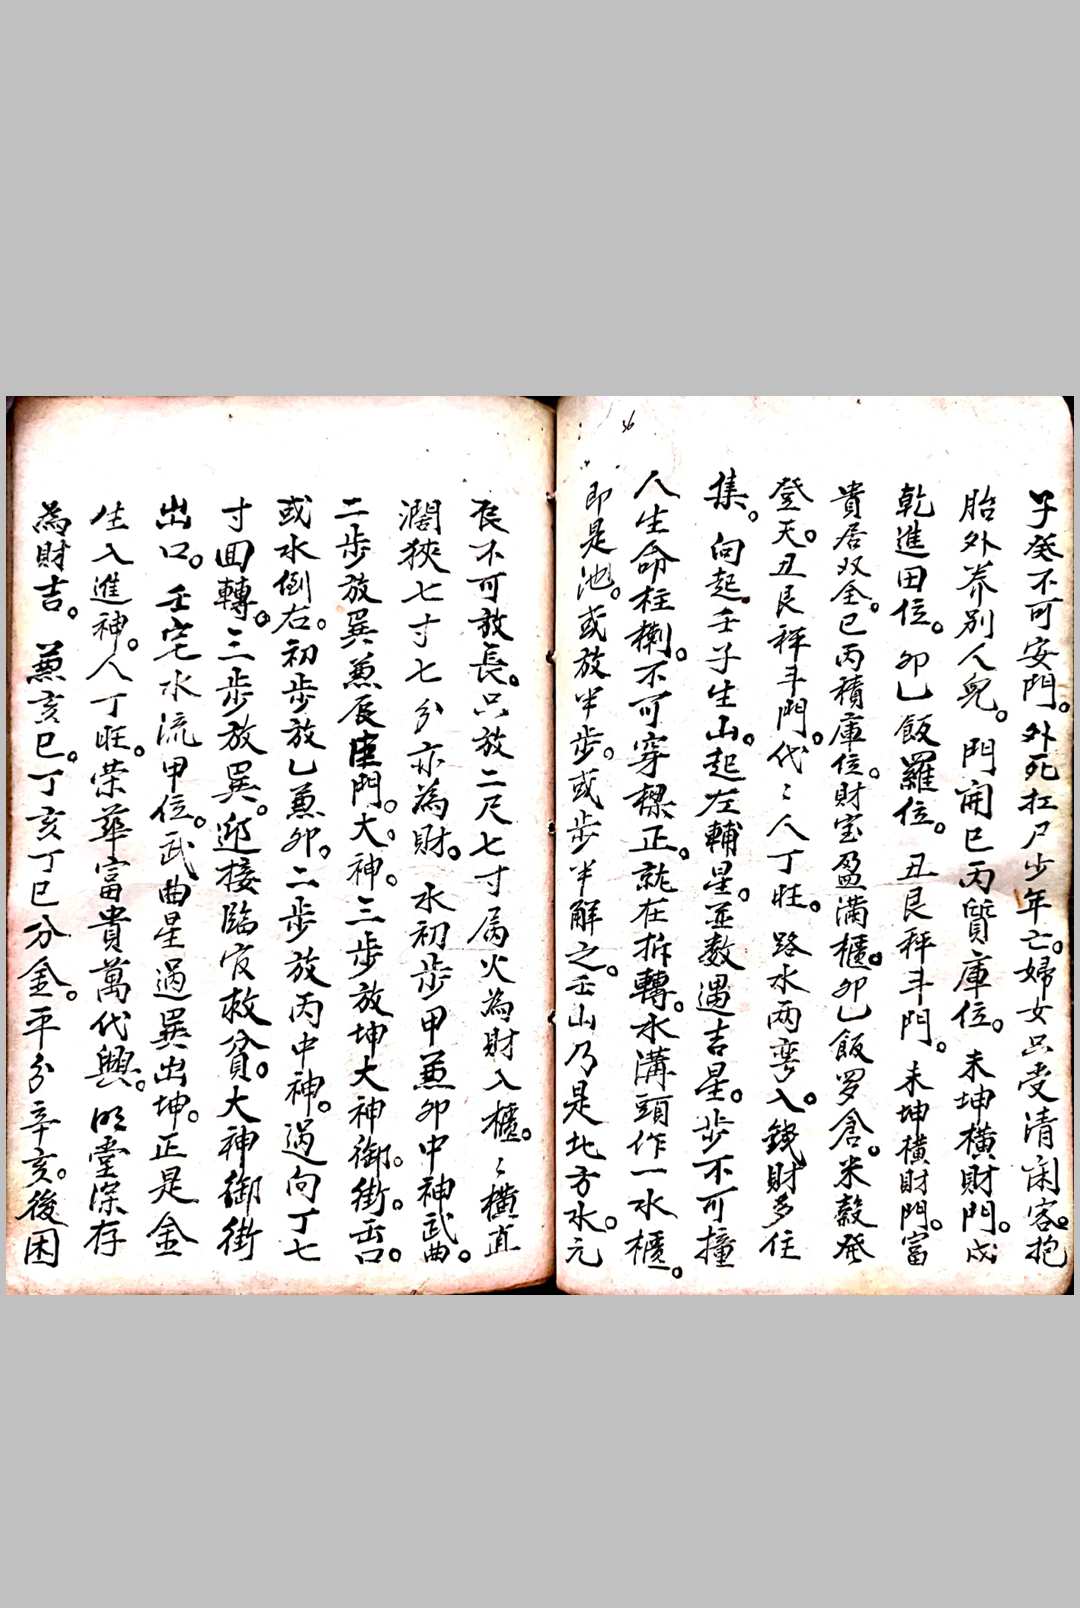 36
子癸不可安門。外死扛尸少年亡。婦女只受清闲客。抱
胎外养別人兒。門開巳丙質庫位。未坤橫財門。戍
乾進田位。卯乙飯羅位。丑艮秤斗門。未坤橫財門。富
貴居双全。巳丙積庫位。財宝盈滿櫃。卯乙飯罗倉。米穀發
登天。丑艮秤斗門。代〻人丁旺。路水两弯入。錢財多住
集。向起壬子生山。起左輔星。並数遇吉星。步不可撞
人生命柱。不可穿樑正。就在拆轉。水溝頭作一水櫃。
即是池。或放半步。或步半解之。壬山乃是北方水。元
辰不可放長。只放二尺七寸属火為財入櫃。〻橫直
濶狹七寸七分亦為財。水初步甲兼卯中神武曲。
二步放巽兼辰库門。大神。三步放坤大神御街。缶口。
或水倒右。初步放乙兼卯。二步放丙中神。過向丁七
寸囬轉。三步放巽。迎接臨官救貧。大神御街
出口。壬宅水流甲位。武曲星過巽出坤。正是金
生入進神。人丁旺。荣華富貴萬代興。明堂深存
為財吉。兼亥巳。丁亥丁巳分金。平分辛亥。後困